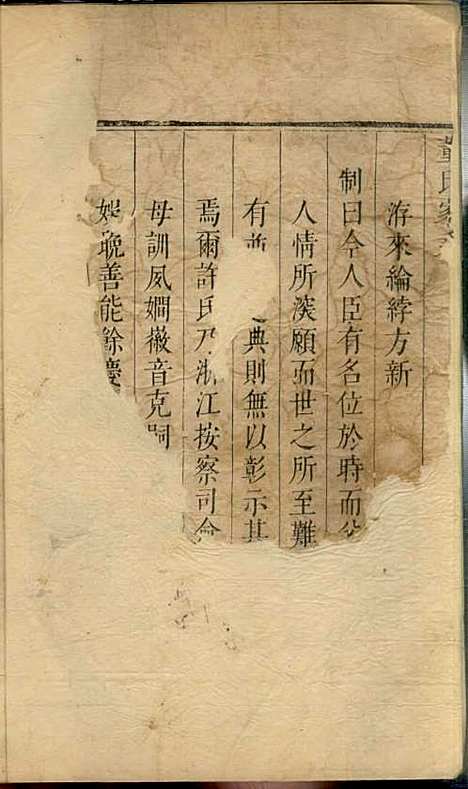 董氏家
洊來綸綍方新
制曰今人臣有名位於時而
人情所深願而世之所至難
有 典則無以彰示其
焉爾許氏乃浙江按察司僉
母訓夙嫺徽音克嗣
晚善能餘慶